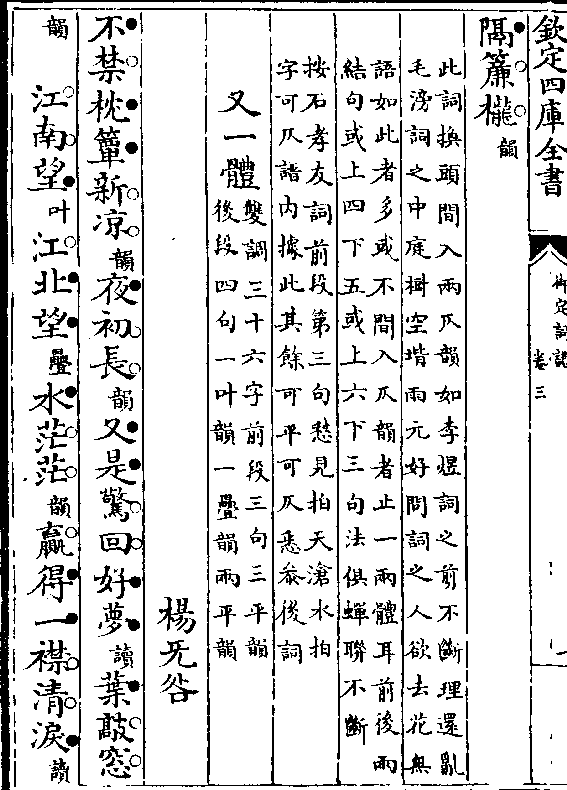 欽定四庫全書
御定詞譜
卷三
隔簾櫳韻
此詞換頭間入兩仄韻如李煜詞之前不斷理還亂
毛滂詞之中庭樹空堦雨元好問詞之人欲去花無
語如此者多或不間入仄韻者止一兩體耳前後兩
結句或上四下五或上六下三句法俱蟬聯不斷
按石孝友詞前段第三句愁見拍天滄水拍
字可仄譜內據此其餘可平可仄悉叅後詞
又一體
雙調三十六字前段三句三平韻
後段四句一叶韻一疊韻兩平韻
楊旡咎
不禁枕簟新凉韻夜初長韻又是驚回好夢讀葉敲窓
韻 江南望叶江北望疊水茫茫韻贏得一襟清淚讀